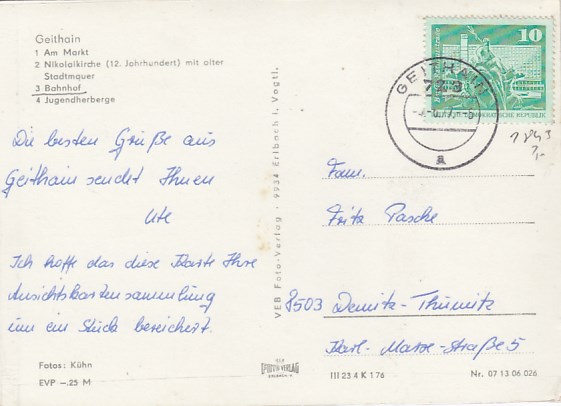 Geithain
1 Am Markt
2 Nikolaikirche (12. Jahrhundert) mit alter
Stadtmauer
3 Bahnhof
4 Jugendherberge
Die besten Grüße aus
Geithain sendet Ihnen
Ute
Ich hoffe das diese Karte Ihre
Ansichtskartensammlung
um ein Stück bereichert.
Fotos: Kühn
EVP –.25 M
VEB Foto-Verlag · 9934 Erlbach i. Vogtl.
10
DEMOKRATISCHE REPUBLIK
GEITHAIN
a
1843
Fam.
Fritz Pasche
8503 Demitz-Thumitz
Karl-Marx-Straße 5
FOTO VERLAG
III 23 4 K 1 76
Nr. 07 13 06 026